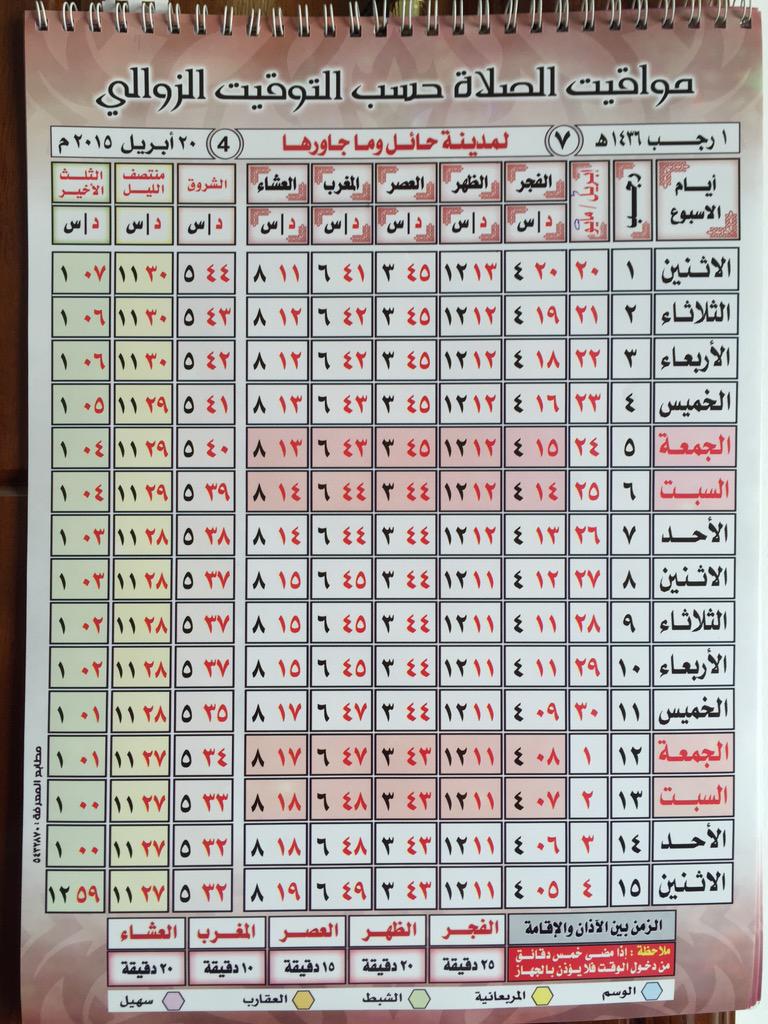 مواقيت الصلاة حسب التوقيت الزوالي
١ رجــب ١٤٣٦ هـ ٧ لمدينة حائل وما جاورها 4 ٢٠ أبريل ٢٠١٥ م
أيام الاسبوع رجــب ابريل / مايو الفجر الظهر العصر المغرب العشاء الشروق منتصف الليل الثلث الأخير
د|س د|س د|س د|س د|س د|س د|س د|س
الاثنين ١ ٢٠ ٢٠ ٤ ١٣ ١٢ ٤٥ ٣ ٤١ ٦ ١١ ٨ ٤٤ ٥ ٣٠ ١١ ٠٧ ١
الثلاثاء ٢ ٢١ ١٩ ٤ ١٢ ١٢ ٤٥ ٣ ٤٢ ٦ ١٢ ٨ ٤٣ ٥ ٣٠ ١١ ٠٦ ١
الأربعاء ٣ ٢٢ ١٨ ٤ ١٢ ١٢ ٤٥ ٣ ٤٢ ٦ ١٢ ٨ ٤٢ ٥ ٣٠ ١١ ٠٦ ١
الخميس ٤ ٢٣ ١٦ ٤ ١٢ ١٢ ٤٥ ٣ ٤٣ ٦ ١٣ ٨ ٤١ ٥ ٢٩ ١١ ٠٥ ١
الجمعة ٥ ٢٤ ١٥ ٤ ١٢ ١٢ ٤٥ ٣ ٤٣ ٦ ١٣ ٨ ٤٠ ٥ ٢٩ ١١ ٠٤ ١
السبت ٦ ٢٥ ١٤ ٤ ١٢ ١٢ ٤٤ ٣ ٤٤ ٦ ١٤ ٨ ٣٩ ٥ ٢٩ ١١ ٠٤ ١
الأحــد ٧ ٢٦ ١٣ ٤ ١٢ ١٢ ٤٤ ٣ ٤٤ ٦ ١٤ ٨ ٣٨ ٥ ٢٨ ١١ ٠٣ ١
الاثنين ٨ ٢٧ ١٢ ٤ ١١ ١٢ ٤٤ ٣ ٤٥ ٦ ١٥ ٨ ٣٧ ٥ ٢٨ ١١ ٠٣ ١
الثلاثاء ٩ ٢٨ ١١ ٤ ١١ ١٢ ٤٤ ٣ ٤٥ ٦ ١٥ ٨ ٣٧ ٥ ٢٨ ١١ ٠٢ ١
الأربعاء ١٠ ٢٩ ١١ ٤ ١١ ١٢ ٤٤ ٣ ٤٥ ٦ ١٥ ٨ ٣٧ ٥ ٢٨ ١١ ٠٢ ١
الخميس ١١ ٣٠ ٠٩ ٤ ١١ ١٢ ٤٤ ٣ ٤٧ ٦ ١٧ ٨ ٣٥ ٥ ٢٨ ١١ ٠١ ١
الجمعة ١٢ ١ ٠٨ ٤ ١١ ١٢ ٤٣ ٣ ٤٧ ٦ ١٧ ٨ ٣٤ ٥ ٢٧ ١١ ٠١ ١
السبت ١٣ ٢ ٠٧ ٤ ١١ ١٢ ٤٣ ٣ ٤٨ ٦ ١٨ ٨ ٣٣ ٥ ٢٧ ١١ ٠٠ ١
الأحــد ١٤ ٣ ٠٦ ٤ ١١ ١٢ ٤٣ ٣ ٤٨ ٦ ١٨ ٨ ٣٢ ٥ ٢٧ ١١ ٠٠ ١
الاثنين ١٥ ٤ ٠٥ ٤ ١١ ١٢ ٤٣ ٣ ٤٩ ٦ ١٩ ٨ ٣٢ ٥ ٢٧ ١١ ٥٩ ١٢
الزمن بين الأذان والإقامة الفجر الظهر العصر المغرب العشاء
ملاحظة : إذا مضى خمس دقائق
من دخول الوقت فلا يؤذن بالجهاز
٢٥ دقيقة ٢٠ دقيقة ١٥ دقيقة ١٠ دقيقة ٢٠ دقيقة
الوسم المربعانية الشبط العقارب سهيل
مطابع المعرفة : ٥٤٣٢٨٧٠